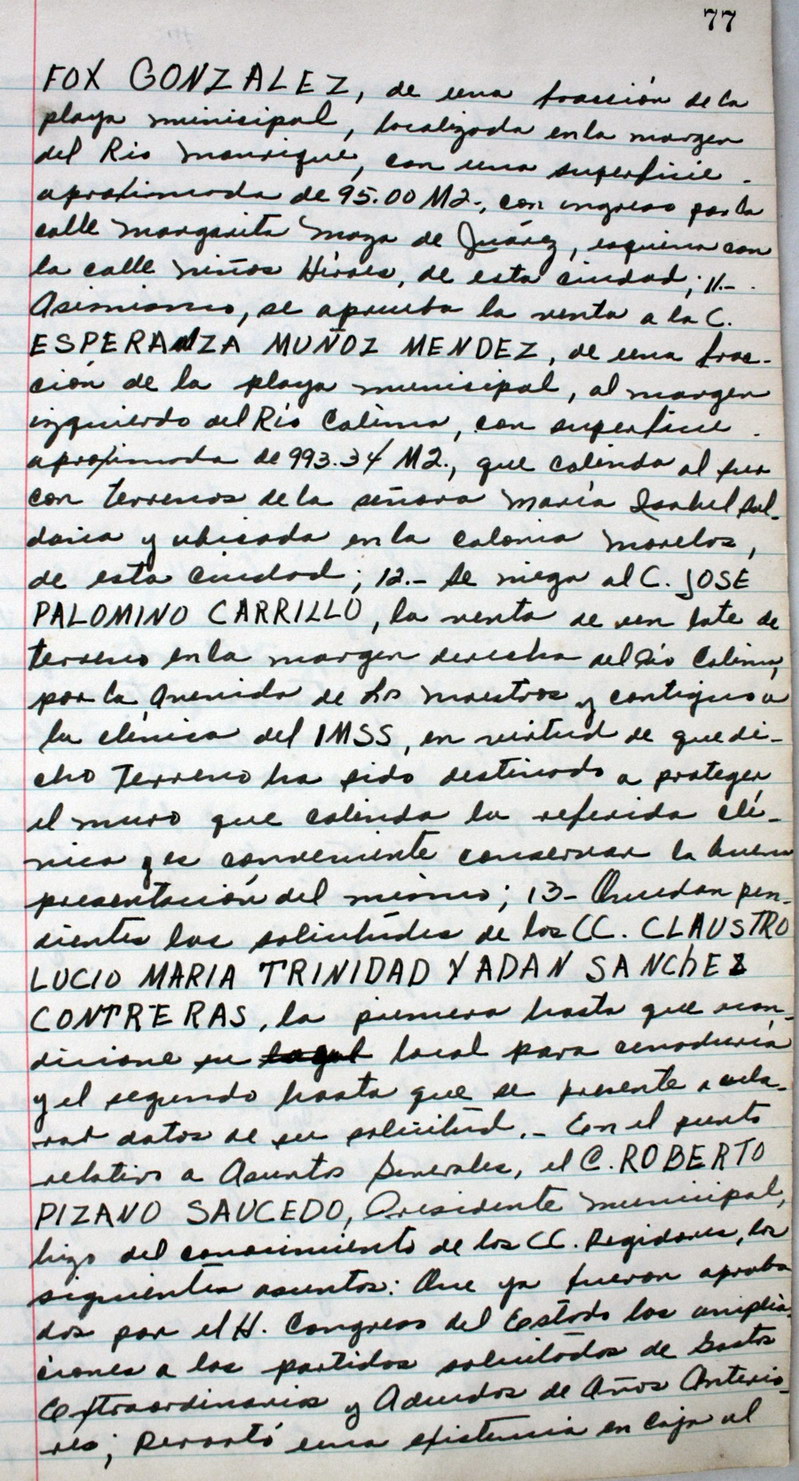 77
FOX GONZALEZ, de una fracción de la
playa municipal, localizada en la margen
del Rio Manrique, con una superficie
aproximada de 95.00 M2., con ingreso por la
calle Margarita Maza de Juárez, esquina con
la calle Niños Héroes, de esta ciudad; 11.-
Asimismo, se aprueba la venta a la C.
ESPERANZA MUÑOZ MENDEZ, de una frac-
ción de la playa municipal, al margen
izquierdo del Río Colima, con superficie
aproximada de 993.34 M2., que colinda al sur
con terrenos de la señora María Isabel Sal-
daña y ubicada en la colonia Morelos,
de esta ciudad; 12.- Se niega al C. JOSE
PALOMINO CARRILLO, la venta de un lote de
terreno en la margen derecha del Río Colima,
por la Avenida de Los Maestros y contiguo a
la clínica del IMSS, en virtud de que di-
cho terreno ha sido destinado a proteger
el muro que colinda la referida clí-
nica y es conveniente conservar la buena
presentación del mismo; 13- Quedan pen-
dientes las solicitudes de los CC. CLAUSTRO
LUCIO MARIA TRINIDAD Y ADAN SANCHEZ
CONTRERAS, la primera hasta que acon-
dicione su local para cenaduría
y el segundo hasta que se presente a acla-
rar datos de su solicitud.- En el punto
relativo a Asuntos Generales, el C. ROBERTO
PIZANO SAUCEDO, Presidente Municipal,
hizo del conocimiento de los CC. Regidores, los
siguientes asuntos: Que ya fueron aproba
dos por el H. Congreso del Estado las amplia-
ciones a las partidas solicitadas de Gastos
Extraordinarios y Adeudos de Años Anterio-
res; Reportó una existencia en caja al